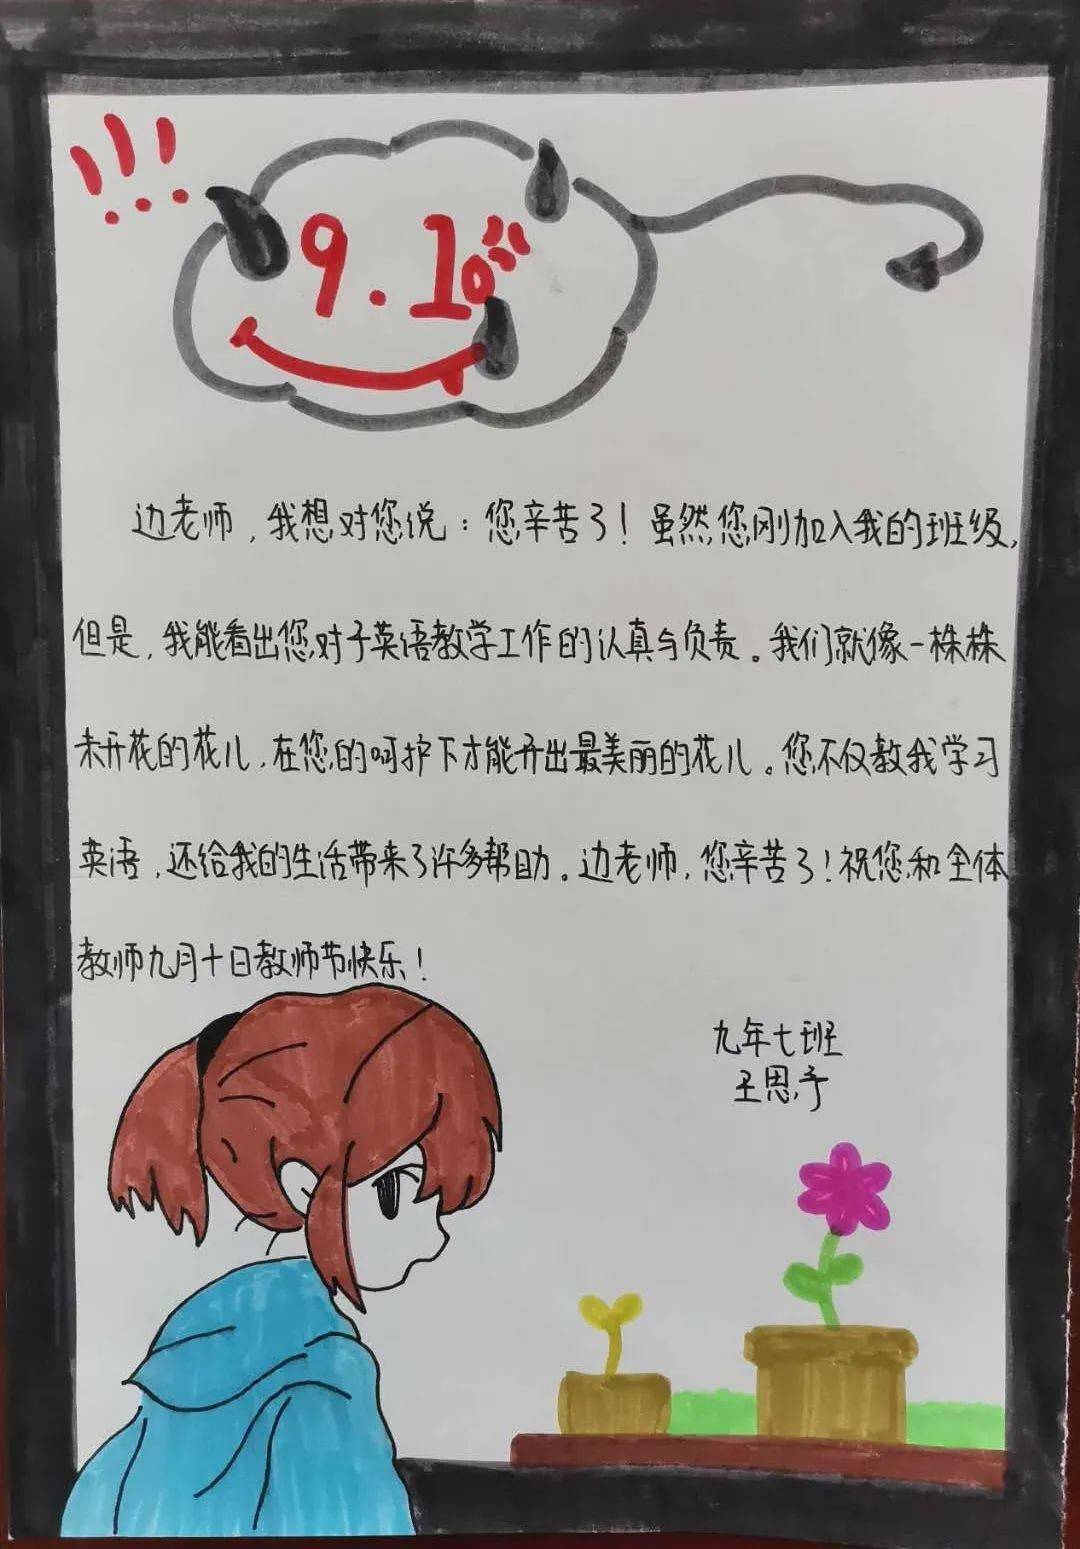 !!!
9.10
边老师，我想对您说：您辛苦了！虽然您刚加入我的班级，
但是，我能看出您对于英语教学工作的认真与负责。我们就像一株株
未开花的花儿，在您的呵护下才能开出最美丽的花儿。您不仅教我学习
英语，还给我的生活带来了许多帮助。边老师，您辛苦了！祝您和全体
教师九月十日教师节快乐！
九年七班
王思予